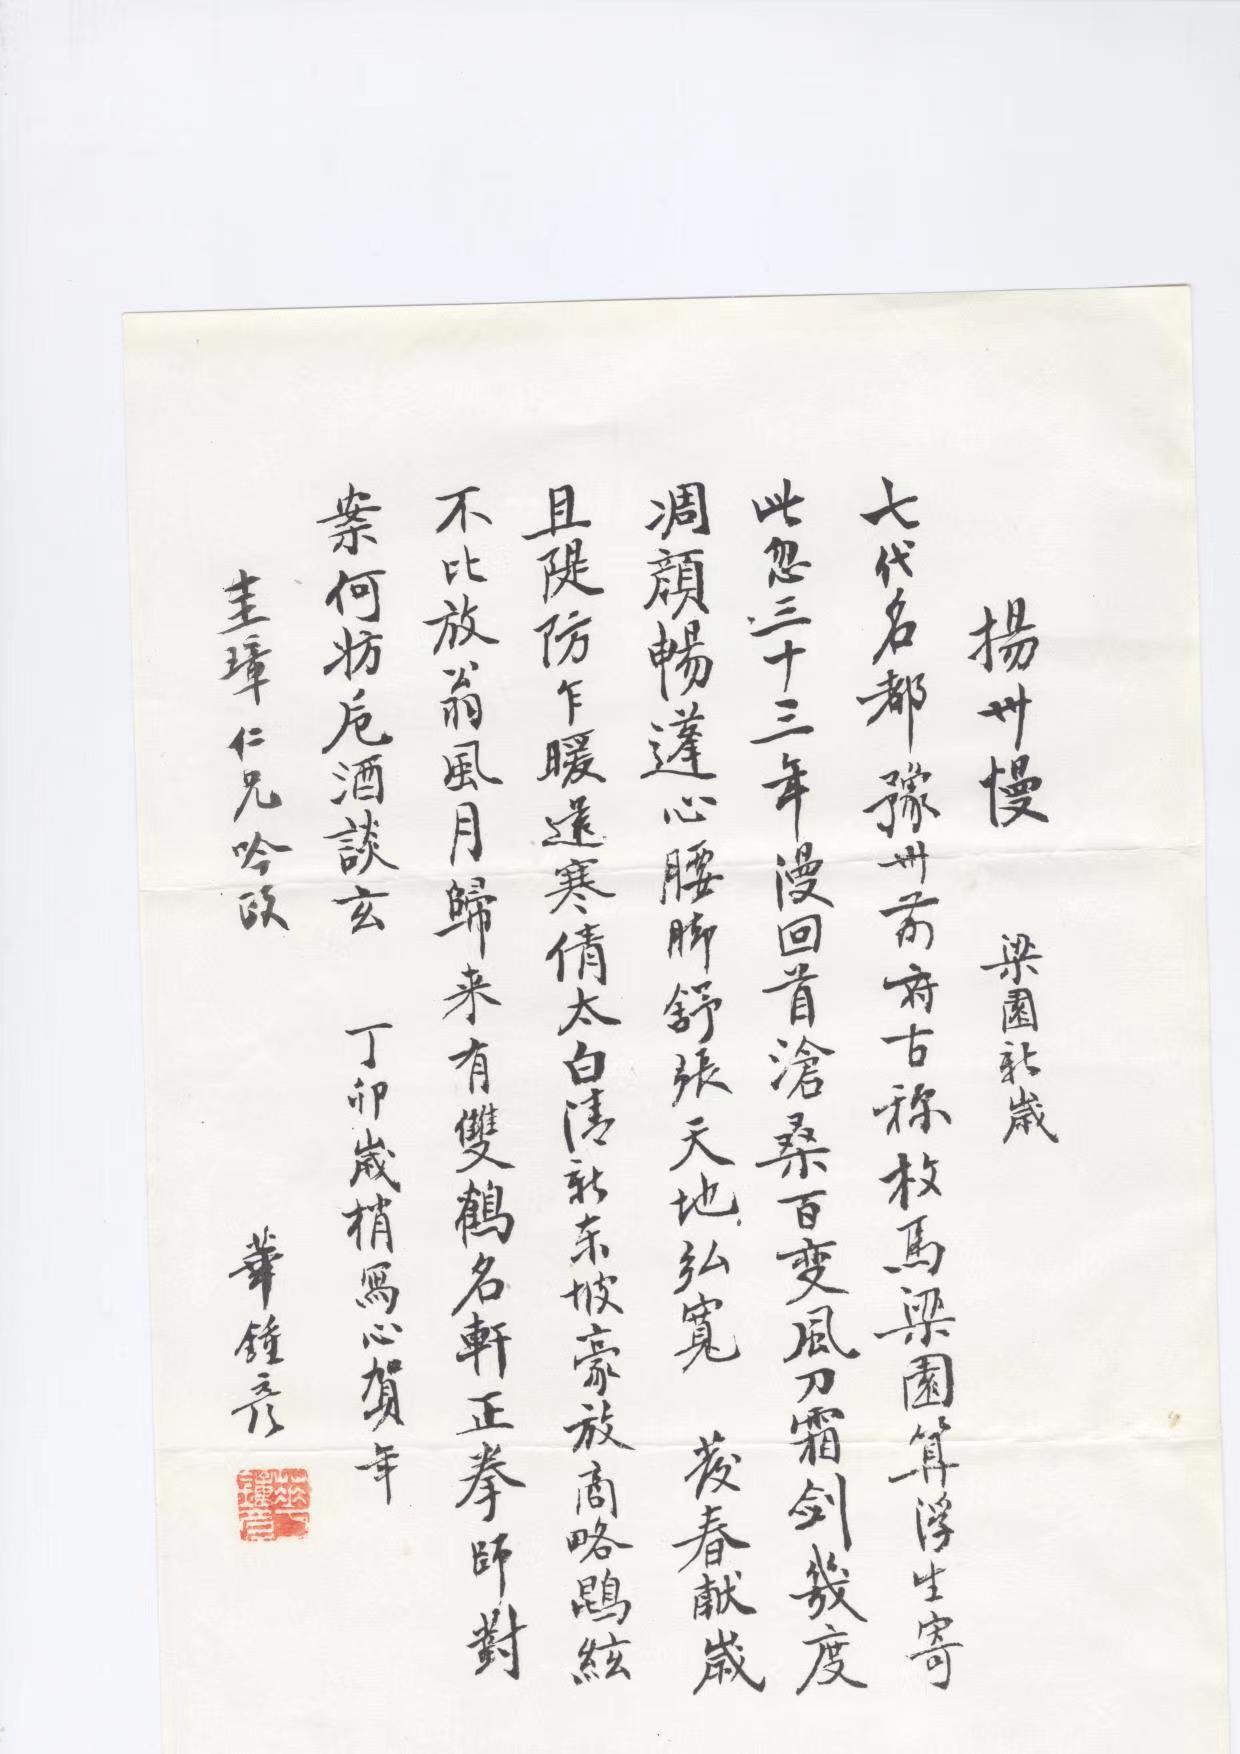 揚州慢 梁園新歲
七代名都豫州前府古称枚馬梁園算浮生寄
此忽三十三年漫回首滄桑百变風刀霜劍幾度
凋顔暢蓬心腰脚舒張天地弘寬 發春献歲
且隄防乍暖還寒倩太白清新东坡豪放商略鵾絃
不比放翁風月歸来有雙鶴名軒正拳師對
案何妨卮酒談玄 丁卯歲梢寫心賀年
圭璋仁兄吟政 華鍾彦
華鍾彦